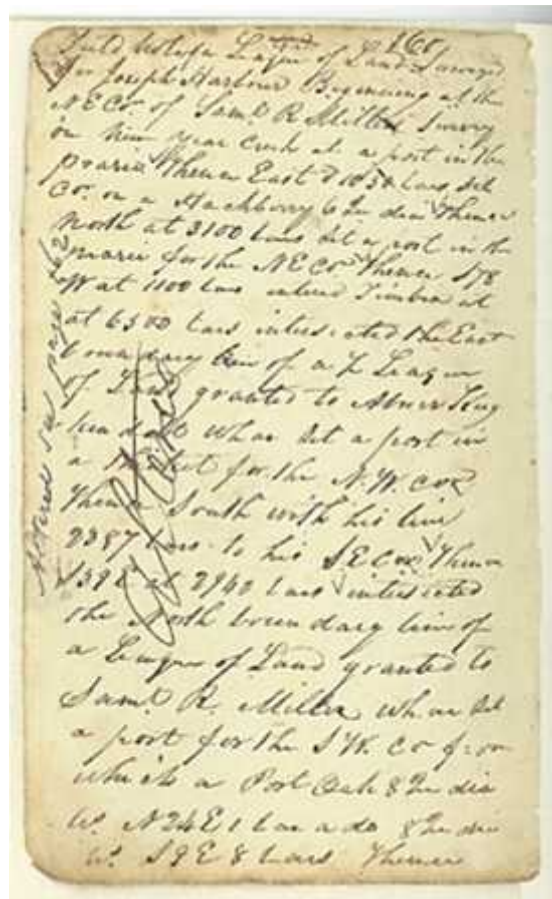 165
Field Notes of a League of Land Surveyed
for Joseph Harbour Beginning at the
NE Cor of Saml. R Miller Survey
on New year Creek at a post in the
prarie Thence East varas set
Co. on a Hackberry 6 In dia Thence
North at 3100 varas set a post in the
prarie for the NE Cor Thence S78
W at 1100 varas entered Timber at
at 6500 varas intersected the East
boundary line of a League
of Land granted to Abner
whar set a post in
a for the N.W. cor
Thence South with his line
2387 varas to his SE Cor Thence
at 2940 varas intersected
the North boundary line of
a League of Land granted to
Saml R. Miller whar set
a post for the S W. Cor from
which a Post Oak 8 In dia
brs N24E 1 vara a do 8 In dia
brs S9E 8 varas Thence
Altered see page